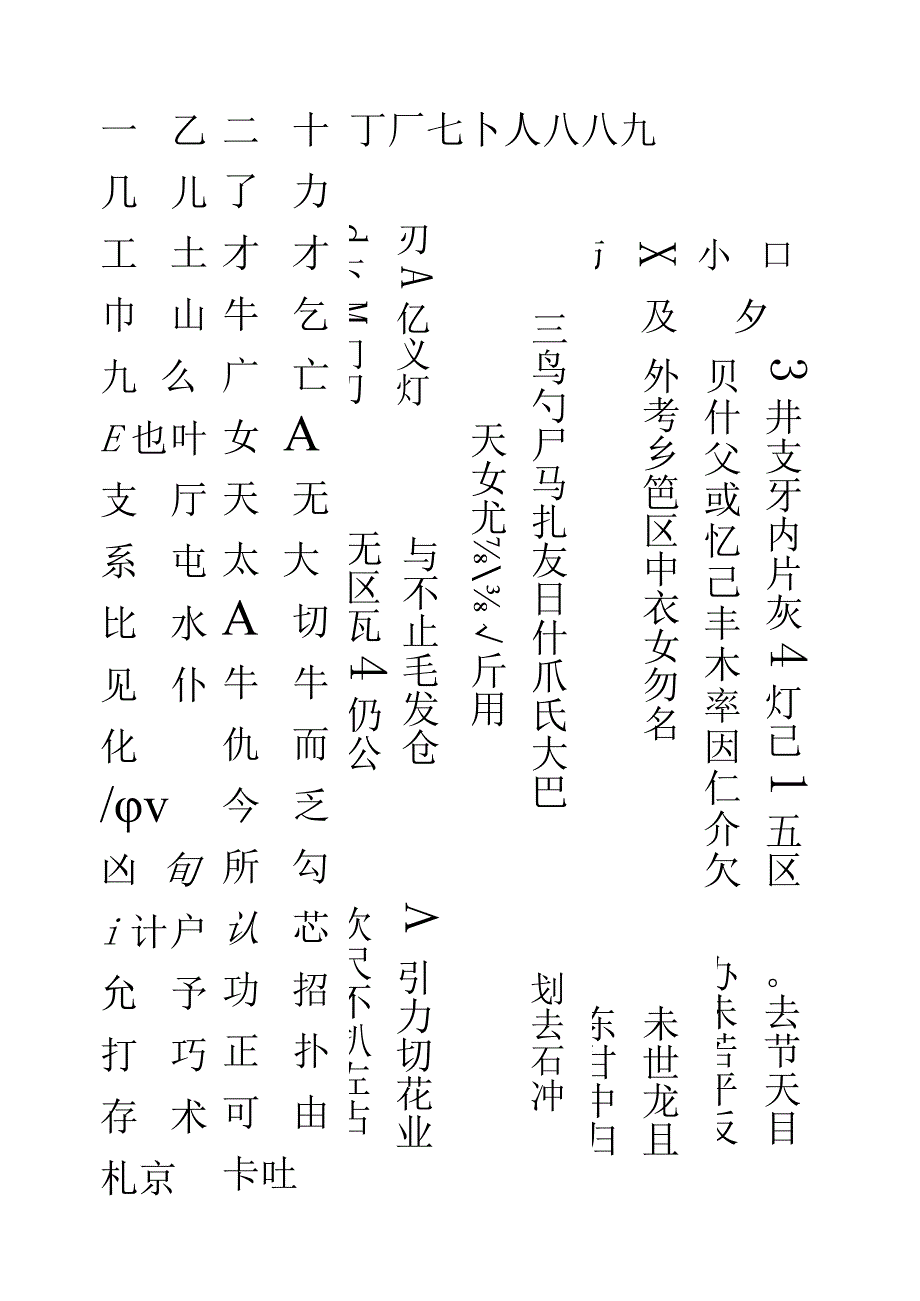 一 乙 二 十 丁厂七卜人八八九
几 儿 了 力
工 土 才 才
巾 山 牛 乞
九 么 广 亡
E也叶 女 A
支 厅 天 无
系 屯 太 大
比 水 A 切
见 仆 牛 牛
化 仇 而
/φv 今 乏
凶 旬 所 勾
i计户 认 芯
允 予 功 招
打 巧 正 扑
存 术 可 由
札京 卡吐
无区瓦4仍公
刃A亿义灯
与不止毛发仓
A引力切花业
天女尤⅞\⅜√斤用
三鸟勺尸马扎友日什爪氏大巴
划去石冲
X 小 口
及 夕
外考乡笆区中衣女勿名
未世龙且
贝什父或忆己丰木率因仁介欠
3井支牙内片灰4灯己1五区
。去节天目